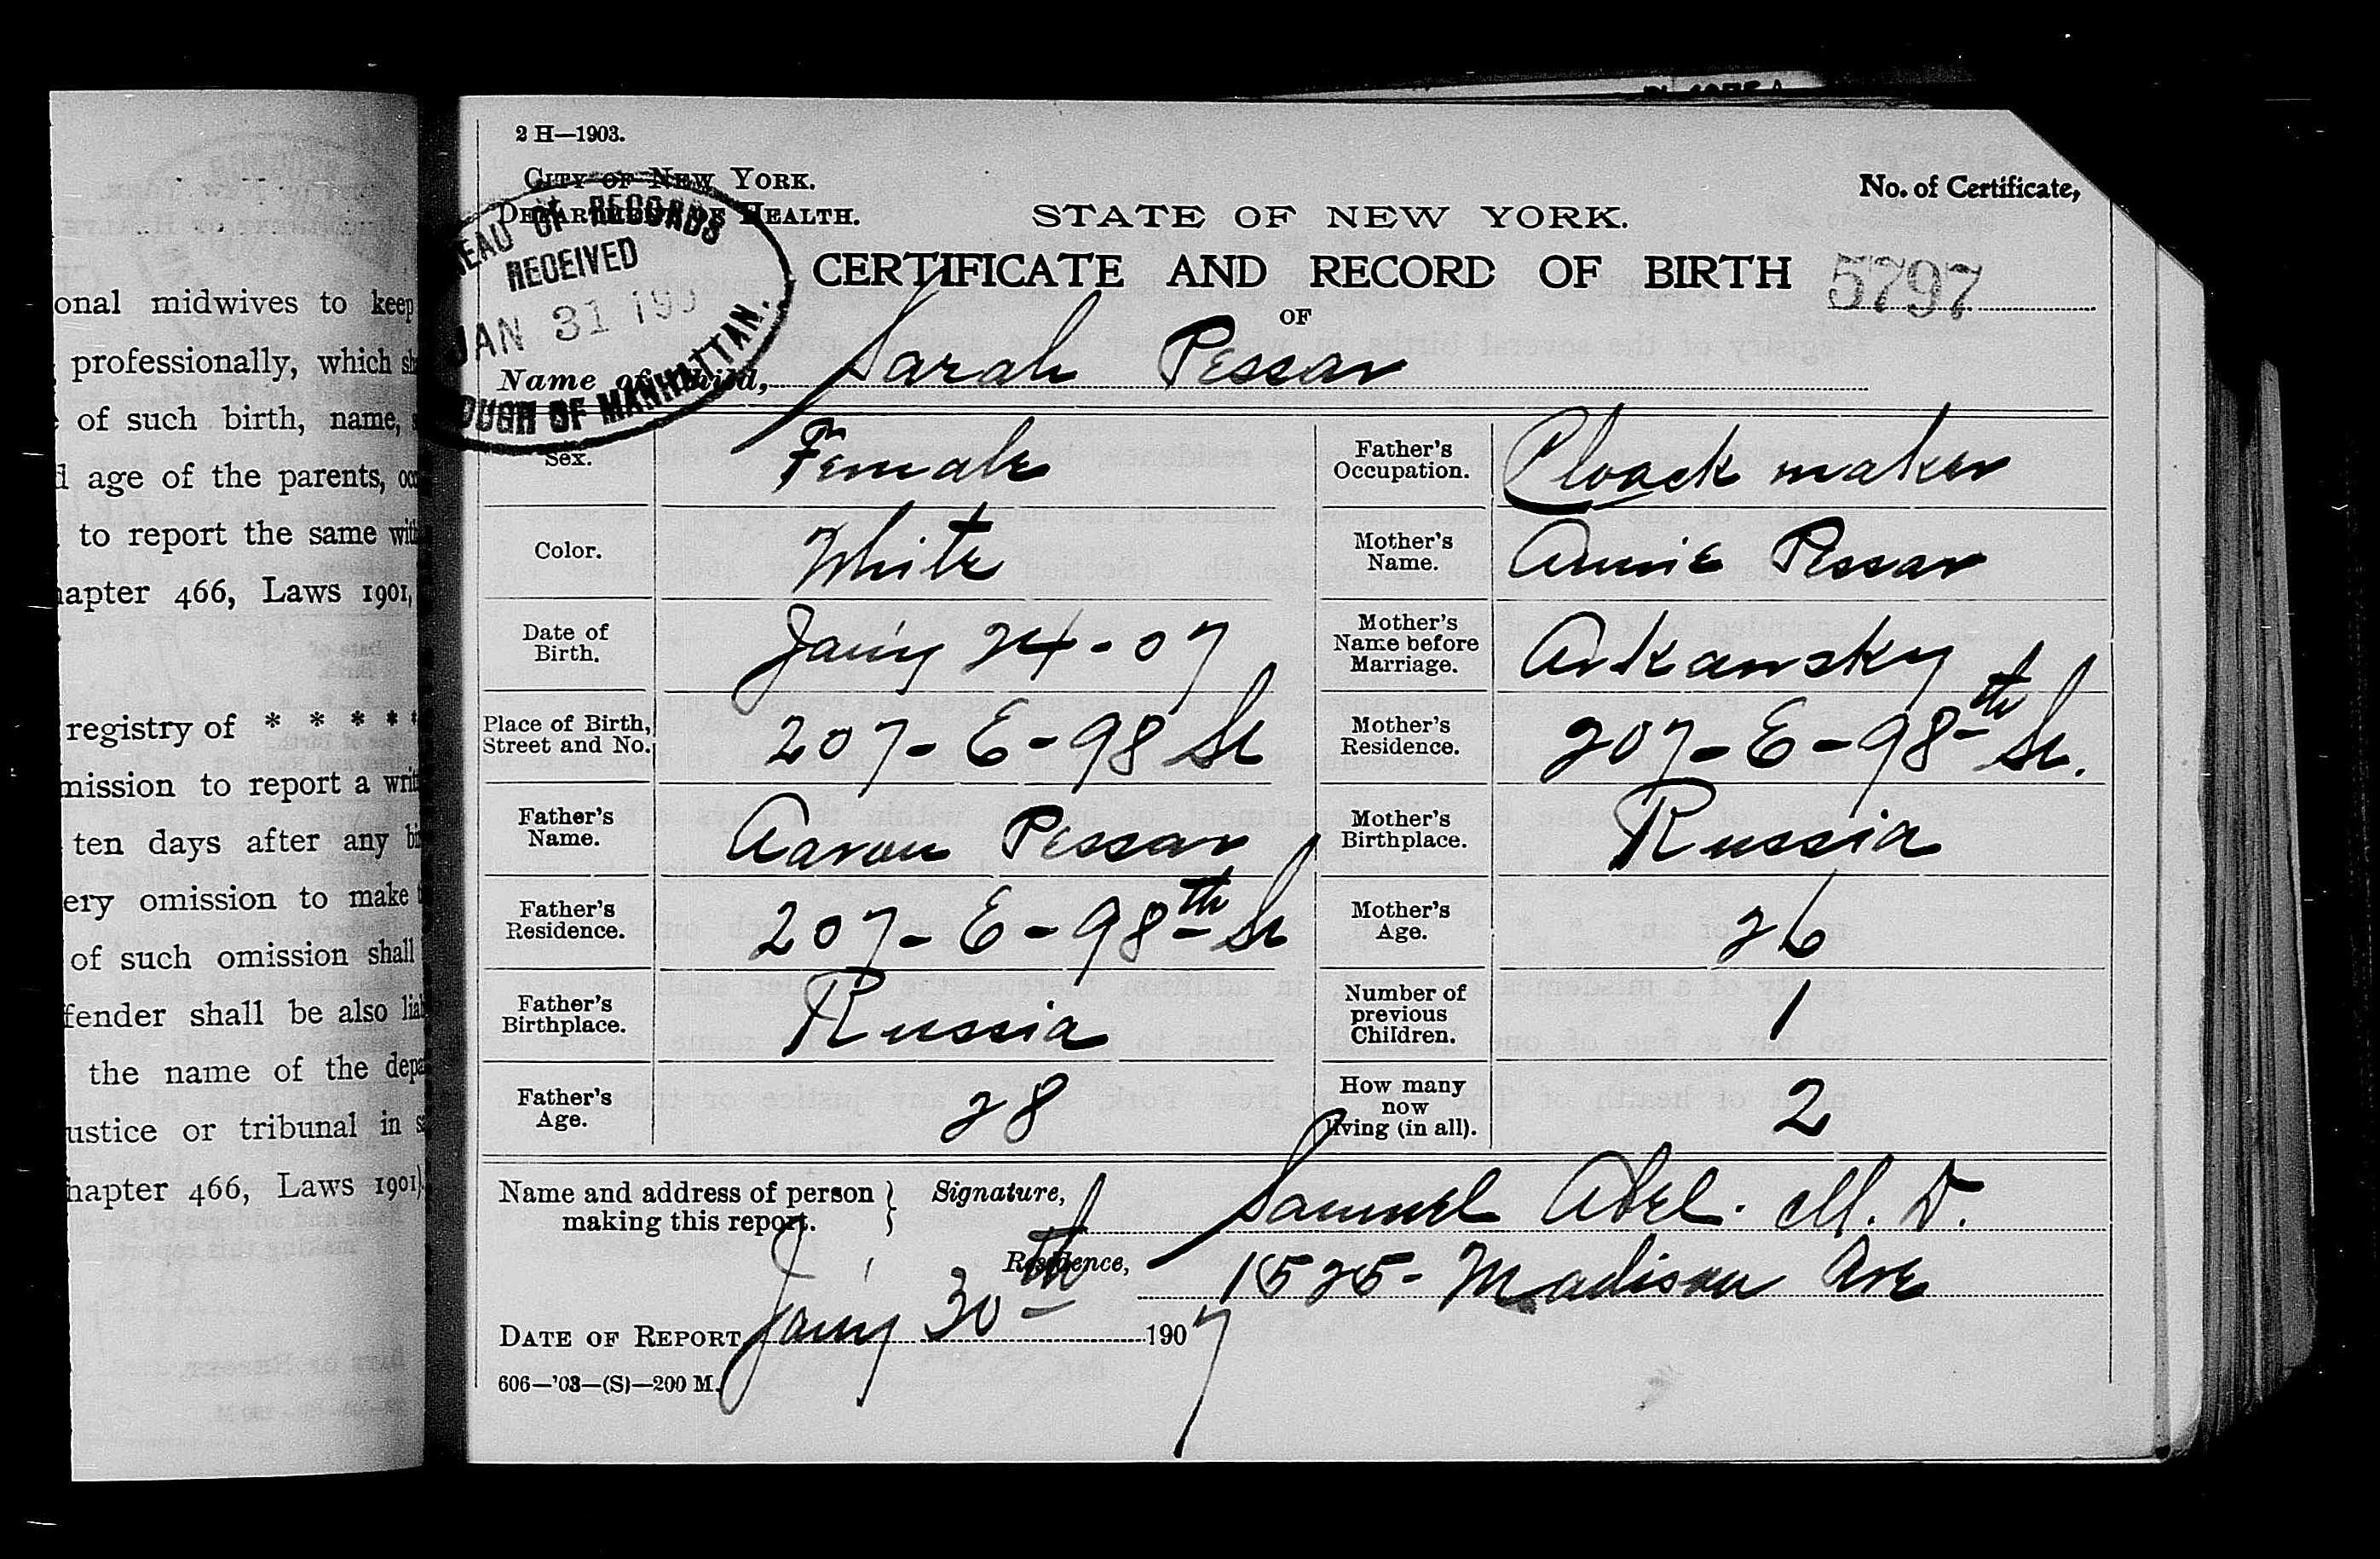 onal midwives to keep
professionally, which sh
of such birth, name,
d age of the parents, occ
to report the same with
hapter 466, Laws 1901,
registry of * * * * *
mission to report a writ
ten days after any bi
ery omission to make t
of such omission shall
fender shall be also liab
the name of the depa
ustice or tribunal in s
hapter 466, Laws 1901).
2 H—1903.
CITY OF NEW YORK.
DEPARTMENT OF HEALTH.
EAU OF RECORDS
RECEIVED
JAN 31 190
OUGH OF MANHATTAN.
No. of Certificate,
STATE OF NEW YORK.
CERTIFICATE AND RECORD OF BIRTH
5797
OF
Name of Child, Sarah Pessar
Sex. Female
Father's Occupation. Cloack maker
Color. White
Mother's Name. Annie Pessar
Date of Birth. Jany 24-07
Mother's Name before Marriage. Arkansky
Place of Birth, Street and No. 207-E-98 St
Mother's Residence. 207-E-98th St.
Father's Name. Aaron Pessar
Mother's Birthplace. Russia
Father's Residence. 207-E-98th St
Mother's Age. 26
Father's Birthplace. Russia
Number of previous Children. 1
Father's Age. 28
How many now living (in all). 2
Name and address of person making this report. } Signature, Samuel Abel. M. D.
Residence, 1525- Madison Ave
DATE OF REPORT Jany 30th 1907
606—'03—(S)—200 M.